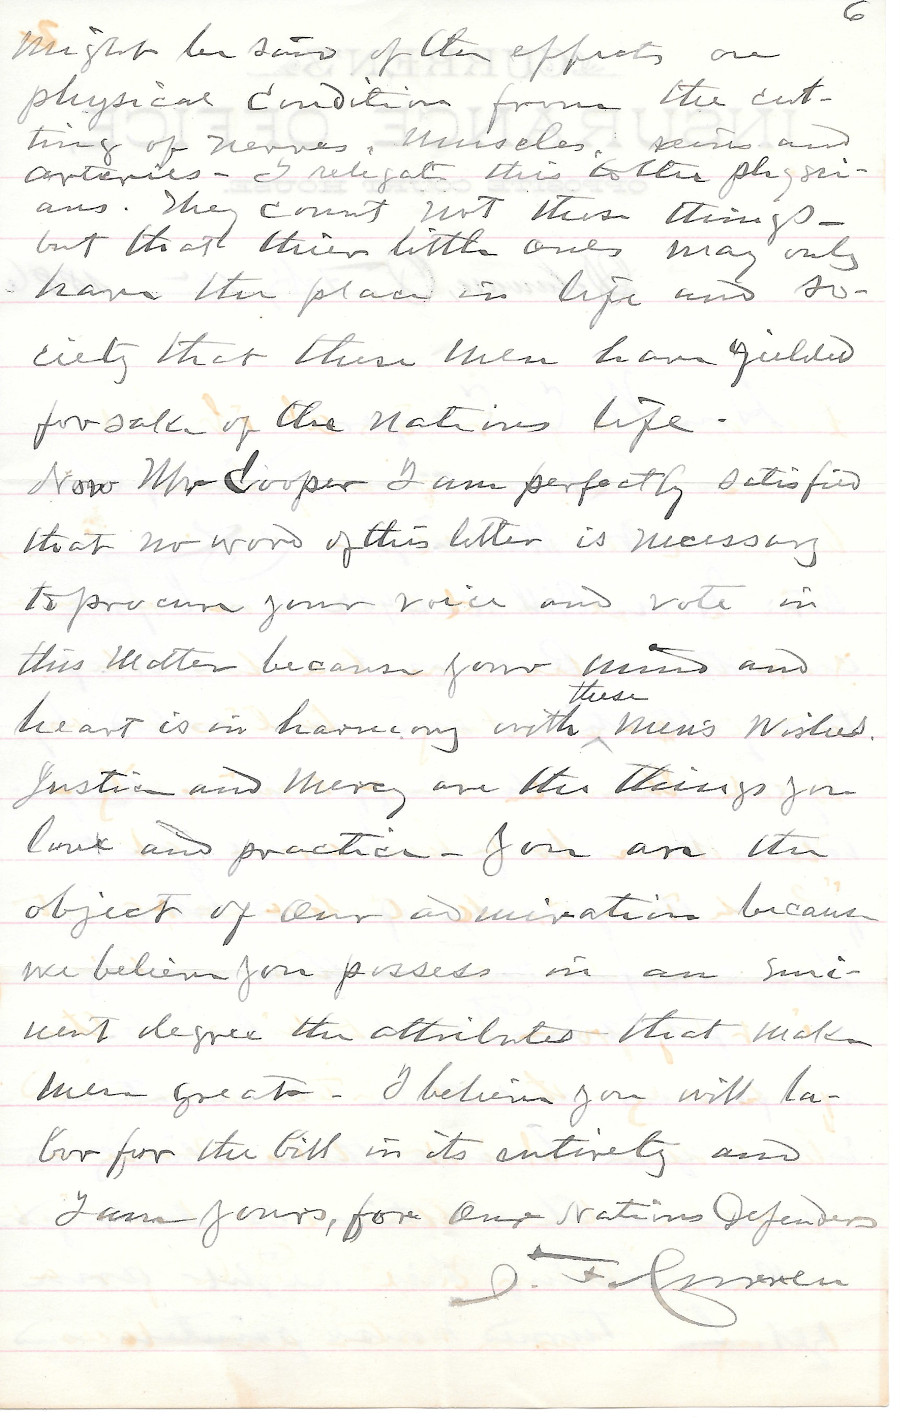 6
might be said of the effects on
physical condition from the cut-
ting of nerves, muscles, veins and
arteries - I relegate this to the physici-
ans. They count not these things -
but that thier little ones may only
have the place in life and so-
ciety that these men have yielded
for sake of the nations life.
Now Mr Cooper I am perfectly satisfied
that no word of this letter is necessary
to procure your voice and vote in
this matter because your mind and
these
heart is in harmony with ^ men's wishes.
Justice and Mercy are the things you
love and practice - You are the
object of our admiration because
we believe you possess in an emi-
nent degree the attributes that make
men great - I believe you will la-
bor for the bill in its entirety and
I am yours, for our Nations Defenders
J. F. Curren